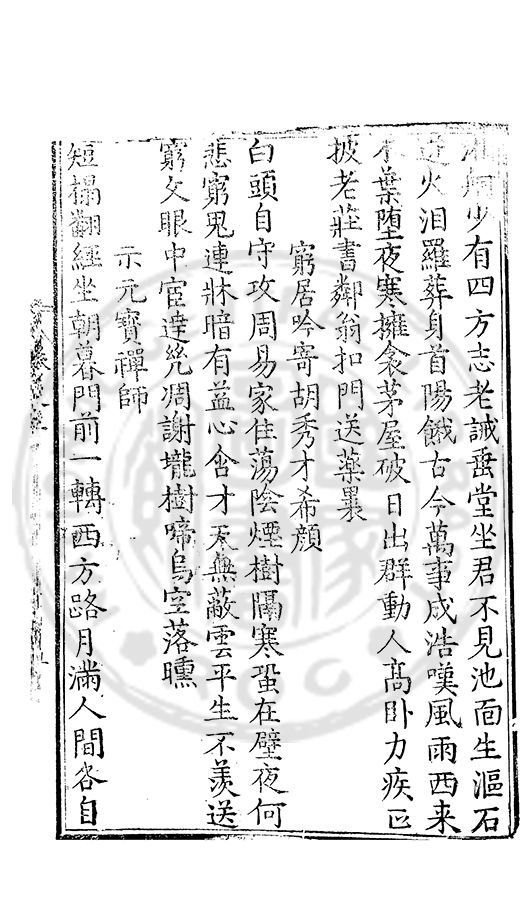 少有四方志老誡垂堂坐君不見池面生漚石
火汨羅葬身首陽餓古今萬事成浩嘆風雨西来
木葉墮夜寒擁衾茅屋破日出群動人髙卧力疾正
披老莊書鄰翁扣門送藥裹
窮居吟寄胡秀才希顔
白頭自守攻周易家住蕩陰煙樹隔寒蛩在壁夜何
悲窮鬼連牀暗有益心含才天無蔽雲平生不羨送
窮文眼中宦達幾凋謝壠樹啼鳥空落曛
示元寶禪師
短榻翻經坐朝暮門前一轉西方路月滿人間各自